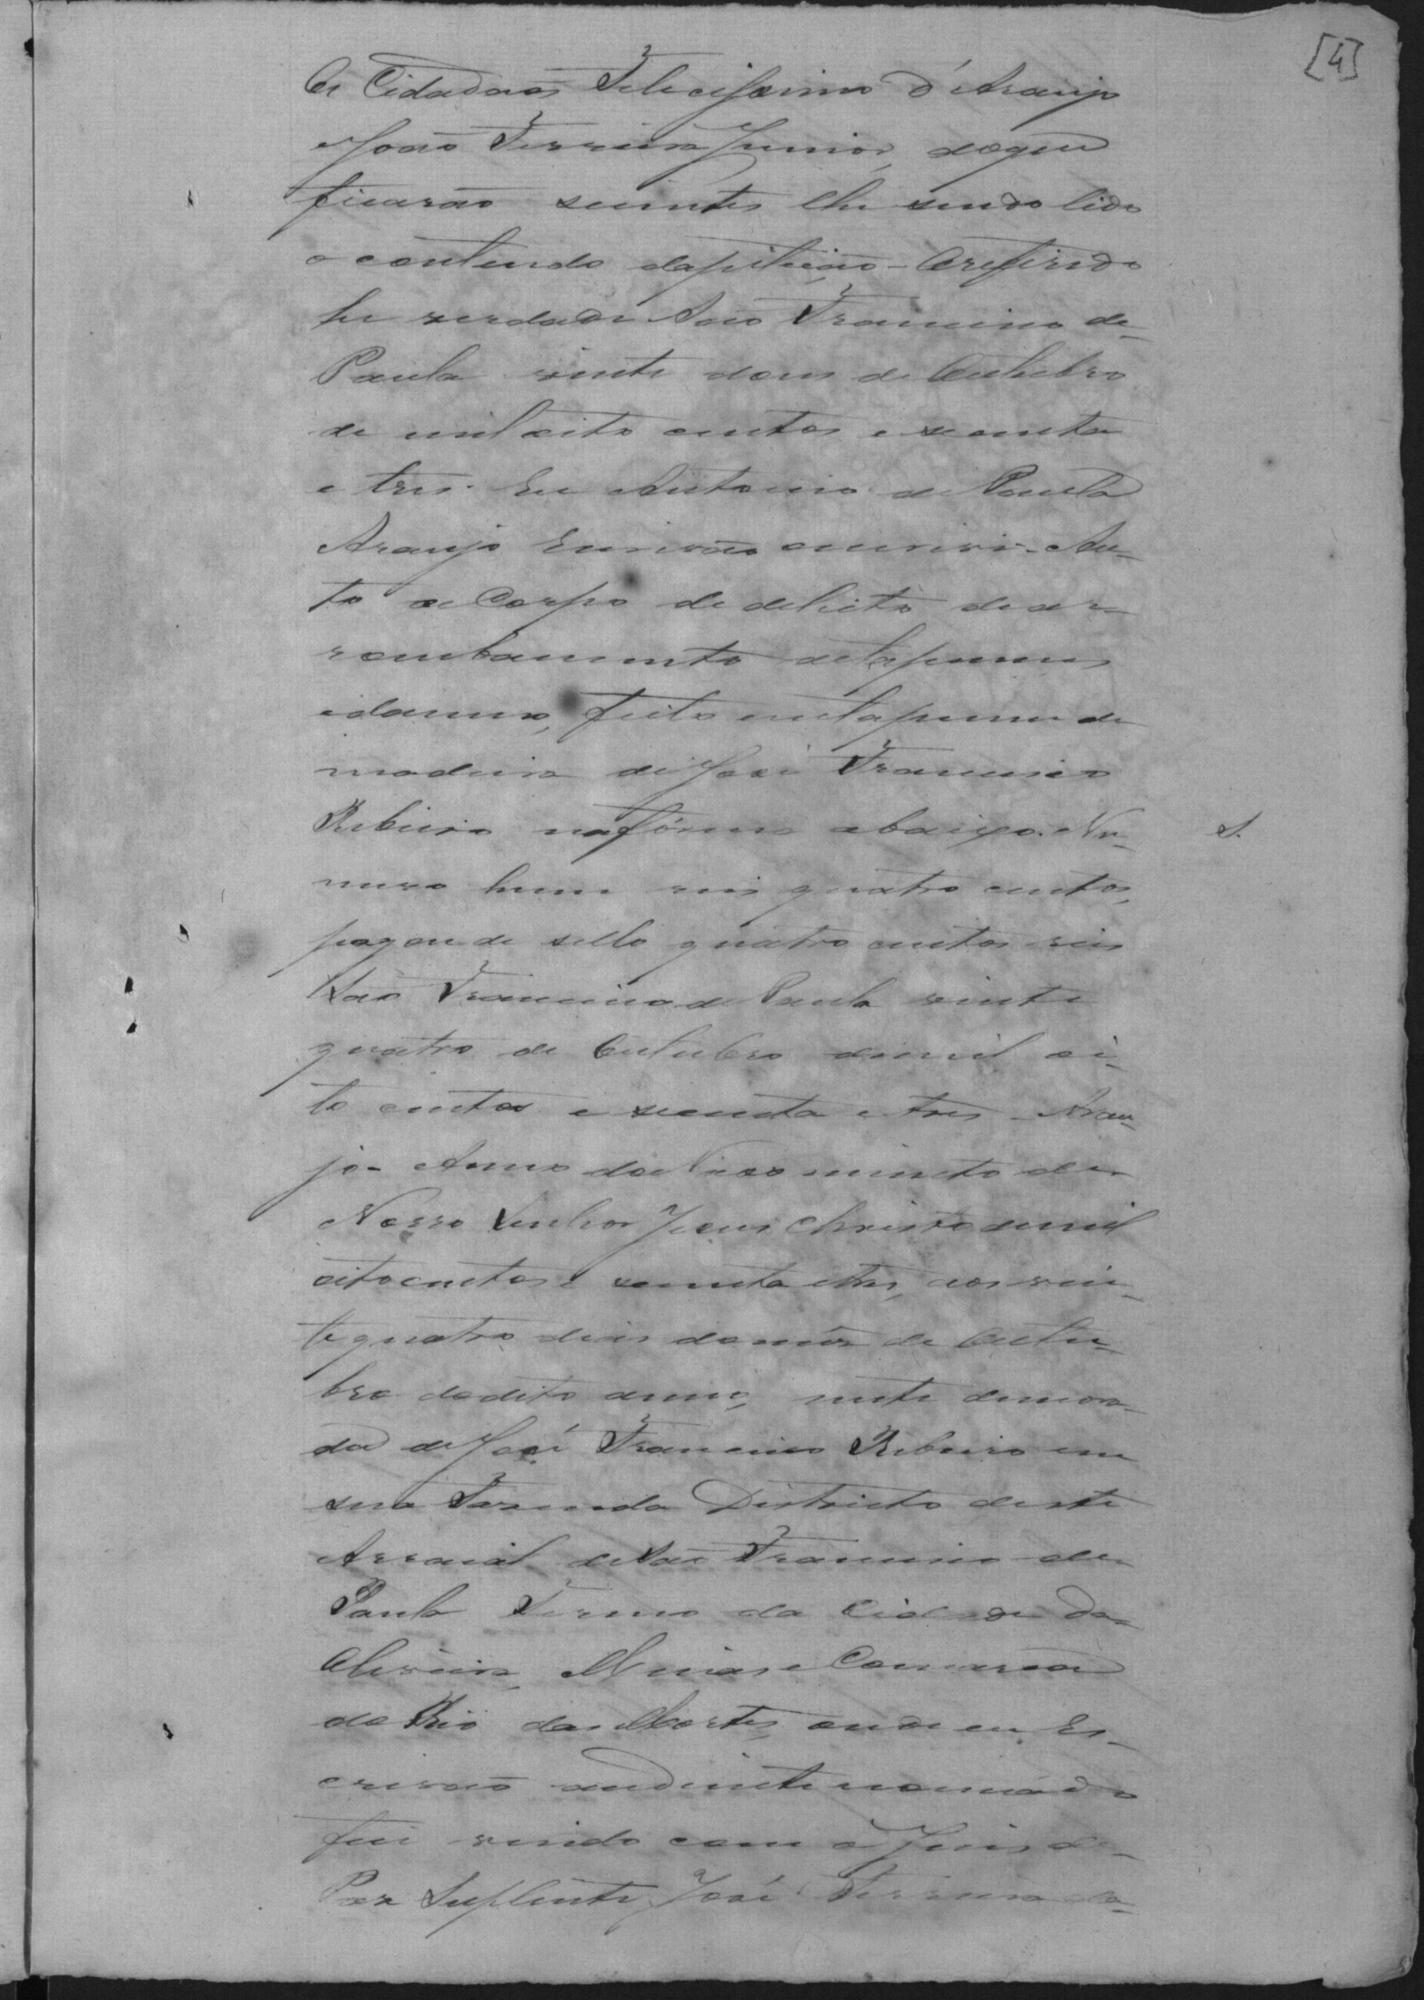 [4]
Os Cidadaons Felecissimo d'Araujo
e Joaõ Ferreira Junior, do que
ficaraõ scientes lhe sendo lido
o contendo da petiçaõ - O referido
he verdade Saõ Francisco de
Paula vinte dous de Outubro
de mil oito centos e secenta
e tres. Eu Antonio de Paula
Araujo Escrivaõ escrevi - Au-
to de Corpo de delicto de ar-
rombamento de tapumes
e damno, feito em tapume de
madeira de José Francisco
Ribeiro na fórma abaixo. Nu-
S.
mero hum reis quatro centos,
pagou de sello quatro centos reis
Saõ Francisco de Paula vinte
quatro de Outubro de mil oi-
to centos e secenta e tres - Arau-
jo - Anno do Nascimento de
Nosso Senhor Jesus Christo de mil
oitocentos e secenta e tres, aos vin-
te quatro dias do mês de Outu-
bro do dito anno, neste de mora-
da de José Francisco Ribeiro em
sua Fazenda Districto deste
Arraial de Saõ Francisco de
Paula Termo da Cidade da
Oliveira, Minas e Comarca
do Rio das Mortes, onde eu Es-
crivaõ audiente nomiádo
fui vindo com o Juis de
Paz Suplente José Ferreira da